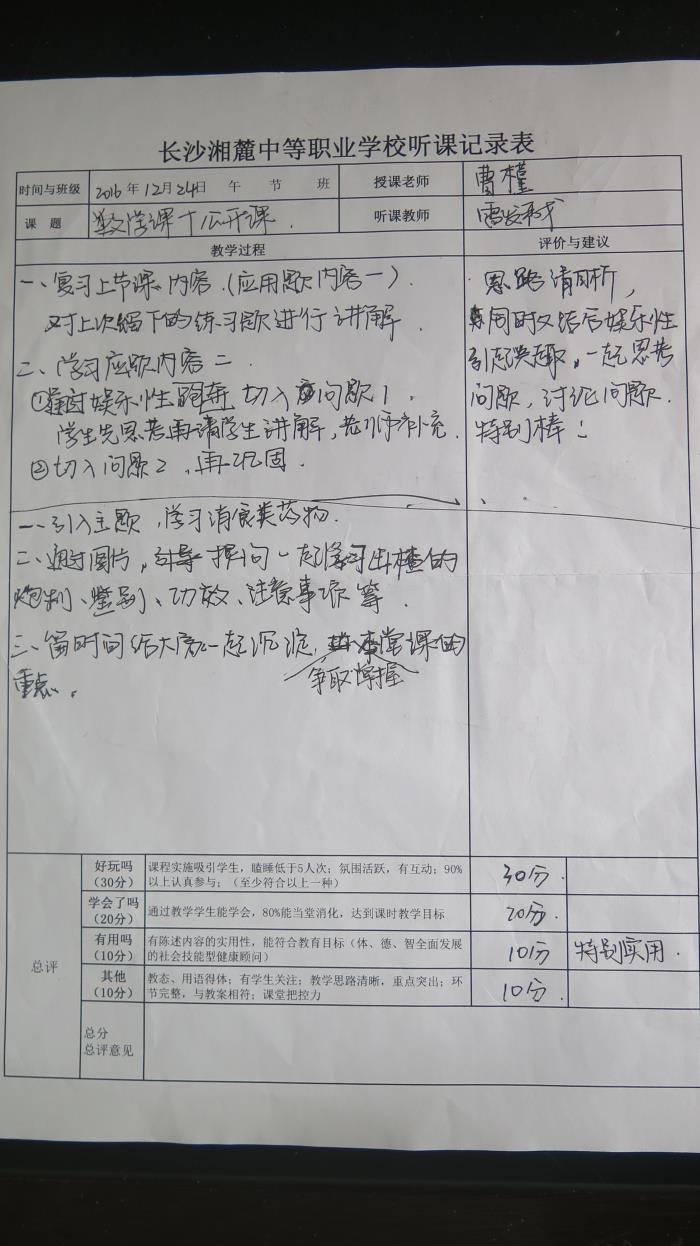 长沙湘麓中等职业学校听课记录表
时间与班级 2016年12月24日 午 节 班 授课老师 曹槿
课 题 数学课十公开课. 听课教师
教学过程 评价与建议
一、复习上节课内容.(应用题内容一).
对上次留下的练习题进行讲解.
二、学习应题内容二.
①通过娱乐性 切入问题1.
学生先思考再请学生讲解,老师补充.
②切入问题2,再巩固.
思路清晰,
同时又结合娱乐性
引起兴趣,一起思考
问题,讨论问题.
特别棒!
一、引入主题,学习消食类药物.
二、通过图片,引导提问一起学习山楂的
炮制、鉴别、功效、注意事项等.
三、留时间给大家一起沉淀,争取掌握本堂课的
重点.
总评
好玩吗(30分) 课程实施吸引学生,瞌睡低于5人次;氛围活跃,有互动;90% 30分.
以上认真参与;(至少符合以上一种)
学会了吗(20分) 通过教学学生能学会,80%能当堂消化,达到课时教学目标 20分.
有用吗(10分) 有陈述内容的实用性,能符合教育目标(体、德、智全面发展 10分 特别实用.
的社会技能型健康顾问)
其他(10分) 教态、用语得体;有学生关注;教学思路清晰,重点突出;环 10分.
节完整,与教案相符;课堂把控力
总分
总评意见